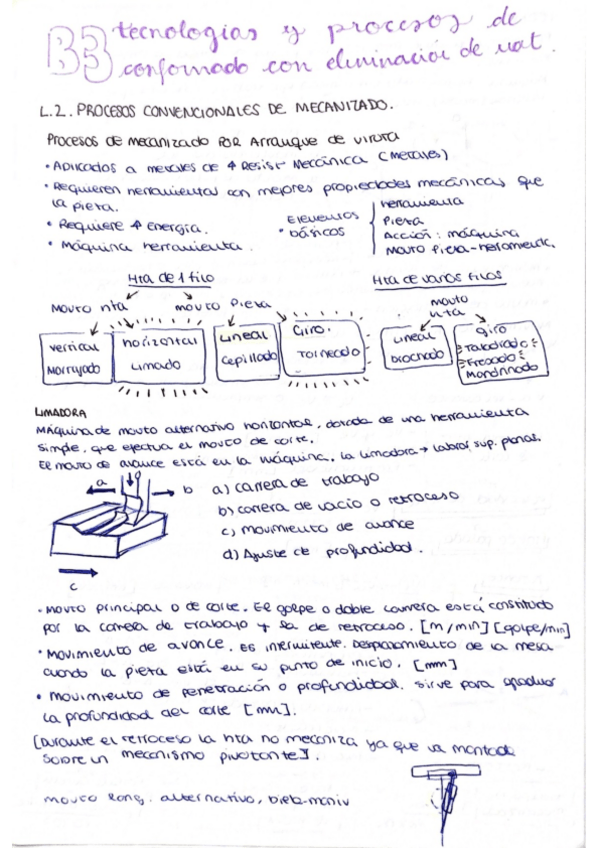 B3 tecnologías y procesos de
conformado con eliminación de mat.
L.2. PROCESOS CONVENCIONALES DE MECANIZADO.
Procesos de mecanizado POR Arranque de viruta
• APLICADOS a metales de ↑ Resist Mecánica (Metales)
• Requieren herramientas con mejores propiedades mecánicas que
la pieza.
• Requiere ↑ energía.
• Máquina herramienta.
• Elementos básicos
herramienta
Pieza
Acción: máquina
Movto pieza-herramienta.
Hta de 1 filo
Movto hta
movto Pieza
vertical
Mortajado
horizontal
Limado
Lineal
Cepillado
Giro.
Torneado
Hta de varios filos
movto
hta
Lineal
Brochado
giro
Taladrado
Fresado
Mandrinado
LIMADORA
Máquina de movto alternativo horizontal, dotada de una herramienta
simple, que efectua el movto de corte.
El movto de avance está en la máquina, la limadora → labrar sup. planas.
a
d
b
c
a) carrera de trabajo
b) carrera de vacío o retroceso
c) movimiento de avance
d) Ajuste de profundidad.
• movto principal o de corte. El golpe o doble carrera está constituido
por la carrera de trabajo + la de retroceso. [m/min] [golpe/min]
• Movimiento de avance. Es intermitente. Desplazamiento de la mesa
cuando la pieza está en su punto de inicio. [mm]
• Movimiento de penetración o profundidad. Sirve para graduar
la profundidad del corte [mm].
[Durante el retroceso la hta no mecaniza ya que va montada
sobre un mecanismo pivotante].
movto long. alternativo, biela-maniv